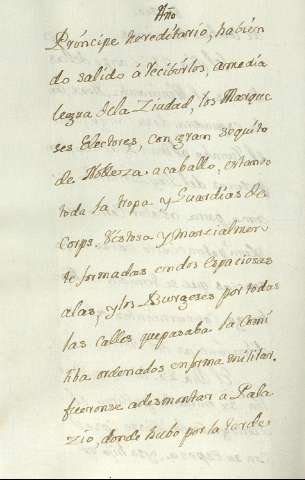 Hño
Príncipe hereditario, habien
do salido á recibirlos, a media
legua de la Ziudad, los Marque
ses Electores, con gran sequito
de Nobleza a caballo, estando
toda la tropa y Guardias de
Corps. Vistosa y marcialmen
te formadas en dos espaciosas
alas, y los Burgeses por todas
las calles que pasaba la Comi
tiba ordenados en forma militar.
fueronse a desmontar a Pala
zio, donde hubo por la tarde